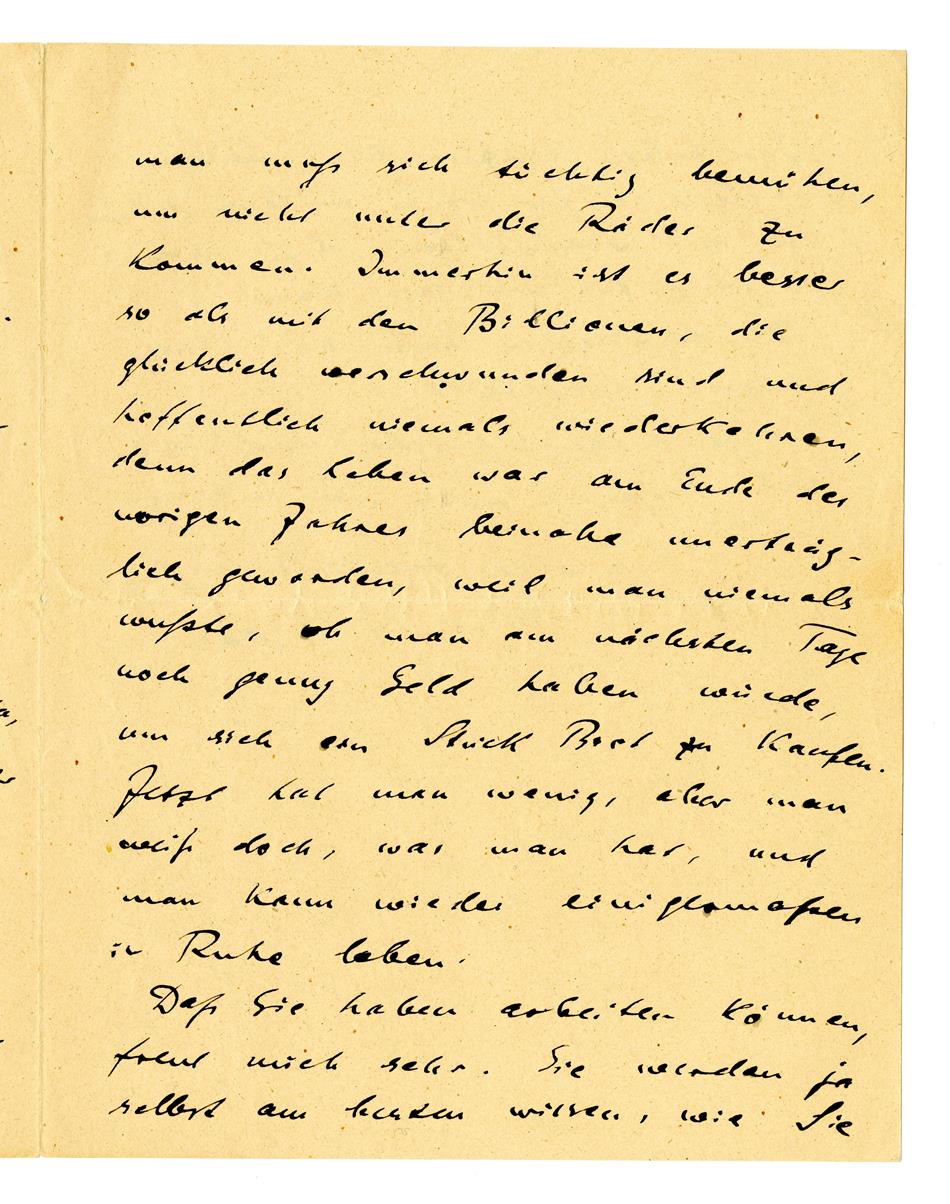 man muß sich tüchtig bemühen,
um nicht unter die Räder zu
kommen. Immerhin ist es besser
so als mit den Billionen, die
glücklich verschwunden sind und
hoffentlich niemals wiederkehren,
denn das Leben war am Ende des
vorigen Jahres beinahe unerträg-
lich geworden, weil man niemals
wußte, ob man am nächsten Tage
noch genug Geld haben würde,
um sich ein Stück Brot zu kaufen.
Jetzt hat man wenig, aber man
weiß doch, was man hat, und
man kann wieder einigermaßen
in Ruhe leben.
Daß Sie haben arbeiten können,
freut mich sehr. Sie werden ja
selbst am besten wissen, wie Sie